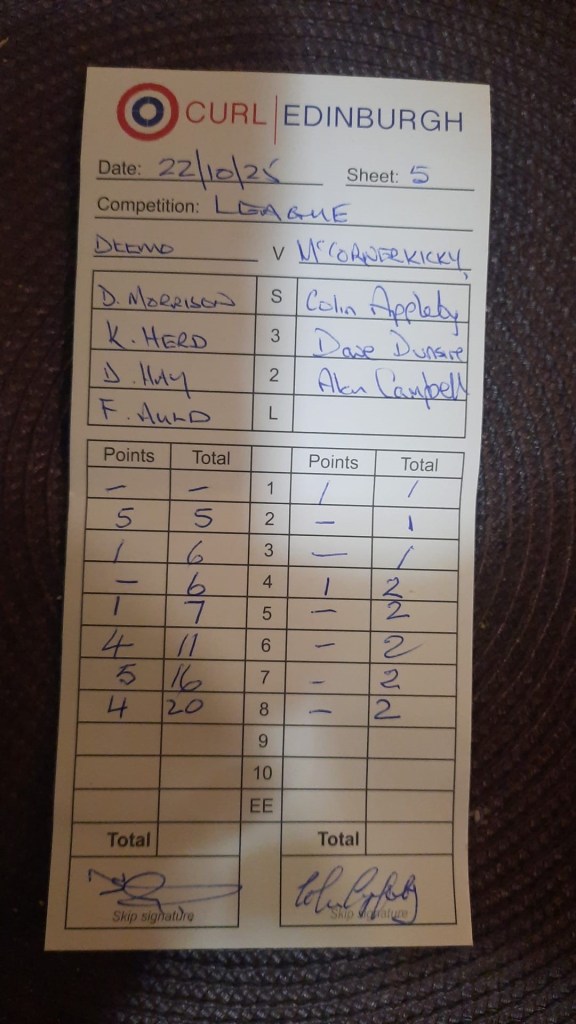 CURL | EDINBURGH
Date: 22/10/25 Sheet: 5
Competition: LEAGUE
DEEMO V McCORNERKICKY
D. MORRISON S Colin Appleby
K. HERD 3 Dave Dunsire
D. HAY 2 Alan Campbell
F. AULD L
Points Total Points Total
- - 1 1 1
5 5 2 - 1
1 6 3 - 1
- 6 4 1 2
1 7 5 - 2
4 11 6 - 2
5 16 7 - 2
4 20 8 - 2
9
10
EE
Total Total
Colin Appleby
Skip signature Skip signature